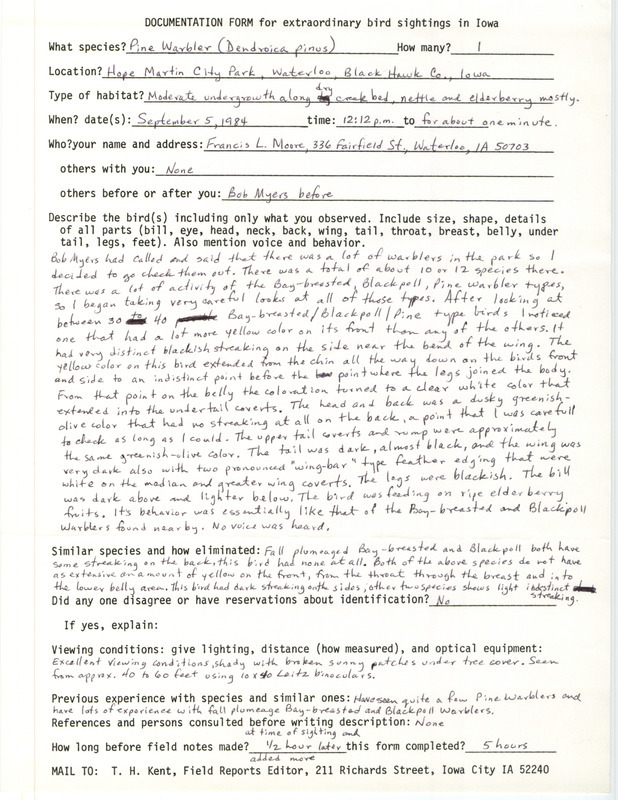 DOCUMENTATION FORM for extraordinary bird sightings in Iowa
What species? Pine Warbler (Dendroica pinus) How many? 1
Location? Hope Martin City Park, Waterloo, Black Hawk Co., Iowa
Type of habitat? Moderate undergrowth along dry creek bed, nettle and elderberry mostly.
When? date(s): September 5, 1984 time: 12:12 p.m. to for about one minute.
Who? your name and address: Francis L. Moore, 336 Fairfield St., Waterloo, IA 50703
others with you: None
others before or after you: Bob Myers before
Describe the bird(s) including only what you observed. Include size, shape, details
of all parts (bill, eye, head, neck, back, wing, tail, throat, breast, belly, under
tail, legs, feet). Also mention voice and behavior.
Bob Myers had called and said that there was a lot of warblers in the park so I
decided to go check them out. There was a total of about 10 or 12 species there.
There was a lot of activity of the Bay-breasted, Blackpoll, Pine warbler types,
so I began taking very careful looks at all of those types. After looking at
between 30 to 40 Bay-breasted/Blackpoll/Pine type birds I noticed
one that had a lot more yellow color on its front than any of the others. It
had very distinct blackish streaking on the side near the bend of the wing. The
yellow color on this bird extended from the chin all the way down on the birds front
and side to an indistinct point before the point where the legs joined the body.
From that point on the belly the coloration turned to a clear white color that
extended into the undertail coverts. The head and back was a dusky greenish-
olive color that had no streaking at all on the back, a point that I was carefull
to check as long as I could. The upper tail coverts and rump were approximately
the same greenish-olive color. The tail was dark, almost black, and the wing was
very dark also with two pronounced "wing-bar" type feather edging that were
white on the median and greater wing coverts. The legs were blackish. The bill
was dark above and lighter below. The bird was feeding on ripe elderberry
fruits. It's behavior was essentially like that of the Bay-breasted and Blackpoll
Warblers found nearby. No voice was heard.
Similar species and how eliminated: Fall plumeaged Bay-breasted and Blackpoll both have
some streaking on the back, this bird had none at all. Both of the above species do not have
as extensive an amount of yellow on the front, from the throat through the breast and into
the lower belly area. This bird had dark streaking on the sides, other two species shows light indestinct
streaking.
Did any one disagree or have reservations about identification? No
If yes, explain:
Viewing conditions: give lighting, distance (how measured), and optical equipment:
Excellent viewing conditions, shady with broken sunny patches under tree cover. Seen
from approx. 40 to 60 feet using 10x40 Leitz binoculars.
Previous experience with species and similar ones: Have seen quite a few Pine Warblers and
have lots of experience with fall plumeage Bay-breasted and Blackpoll Warblers.
References and persons consulted before writing description: None
at time of sighting and
How long before field notes made? 1/2 hour later this form completed? 5 hours
added more
MAIL TO: T. H. Kent, Field Reports Editor, 211 Richards Street, Iowa City IA 52240